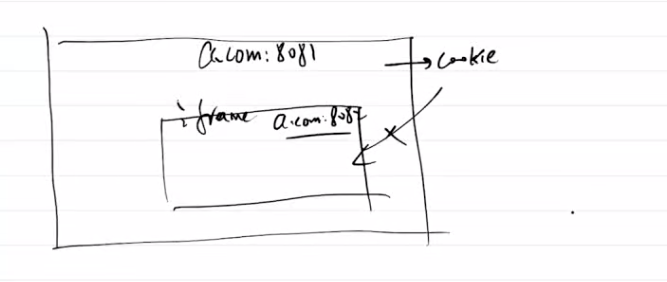 a.com:8081
→ cookie
iframe a.com:8082
×